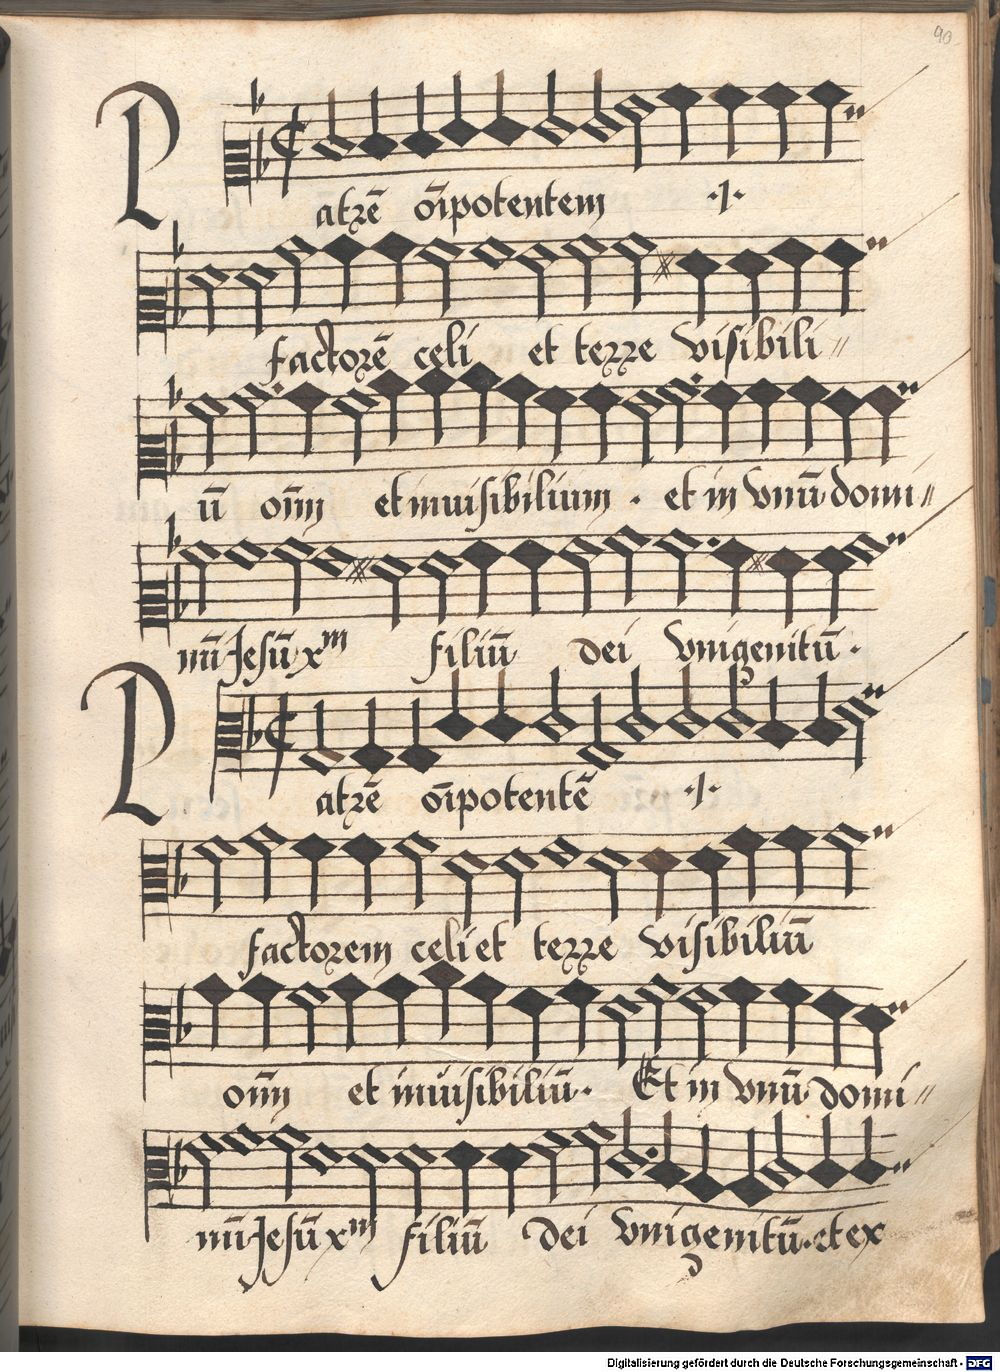 90
Patrē oīpotentem ·1·
factorē celi et terre visibili〃
ū oīm et inuisibilium · et in vnū domi〃
nū Jesū xm filiū dei vnigenitū ·
Patrē oīpotentē ·1·
factorem celi et terre visibiliū
oīm et inuisibiliū · Et in vnū domi〃
nū Jesū xm filiū dei vnigenitū · et ex
Digitalisierung gefördert durch die Deutsche Forschungsgemeinschaft - DFG